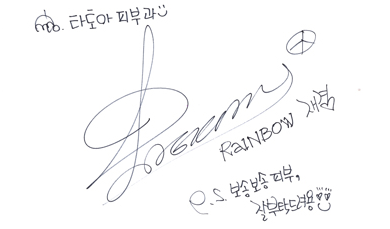 to. 타토아 피부과
RAINBOW 재경
P.S. 보송보송 피부,
잘 부탁드려용